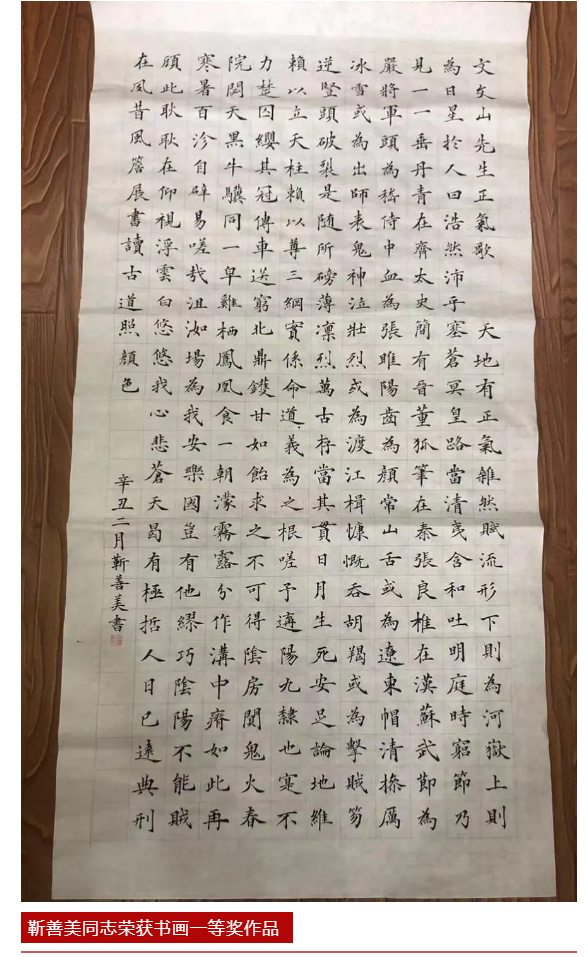 文文山先生正氣歌 天地有正氣雜然賦流形下則為河嶽上則
為日星於人曰浩然沛乎塞蒼冥皇路當清夷含和吐明庭時窮節乃
見一一垂丹青在齊太史簡有晉董狐筆在秦張良椎在漢蘇武節為
嚴將軍頭為嵇侍中血為張睢陽齒為顏常山舌或為遼東帽清操厲
冰雪或為出師表鬼神泣壯烈或為渡江楫慷慨吞胡羯或為擊賊笏
逆豎頭破裂是隨所磅薄凜烈萬古存當其貫日月生死安足論地維
賴以立天柱賴以尊三綱實係命道義為之根嗟予遘陽九隸也寔不
力楚囚纓其冠傳車送窮北鼎鑊甘如飴求之不可得陰房闃鬼火春
院閟天黑牛驥同一皁雞栖鳳凰食一朝濛霧露分作溝中瘠如此再
寒暑百沴自辟易嗟哉沮洳場為我安樂國豈有他繆巧陰陽不能賊
顧此耿耿在仰視浮雲白悠悠我心悲蒼天曷有極哲人日已遠典刑
在夙昔風簷展書讀古道照顏色
辛丑二月靳善美書
靳善美同志荣获书画一等奖作品